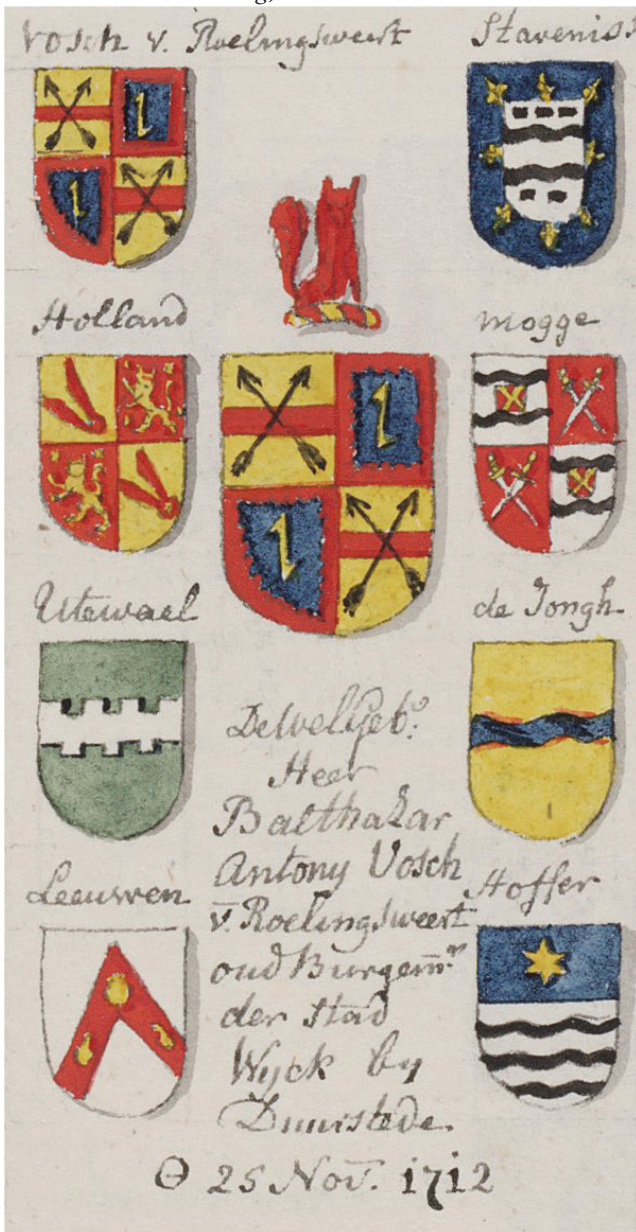 Vosch v. Roelingsweert
Stavenis
Holland
Mogge
Utewael
de Jongh
Leeuwen
Hoffer
DeWelGeb.o
Heer
Balthazar
Antony Vosch
v. Roelingsweert
oud Burgem.r
der Stad
Wyck by
Duurstede.
Θ 25 Nov. 1712